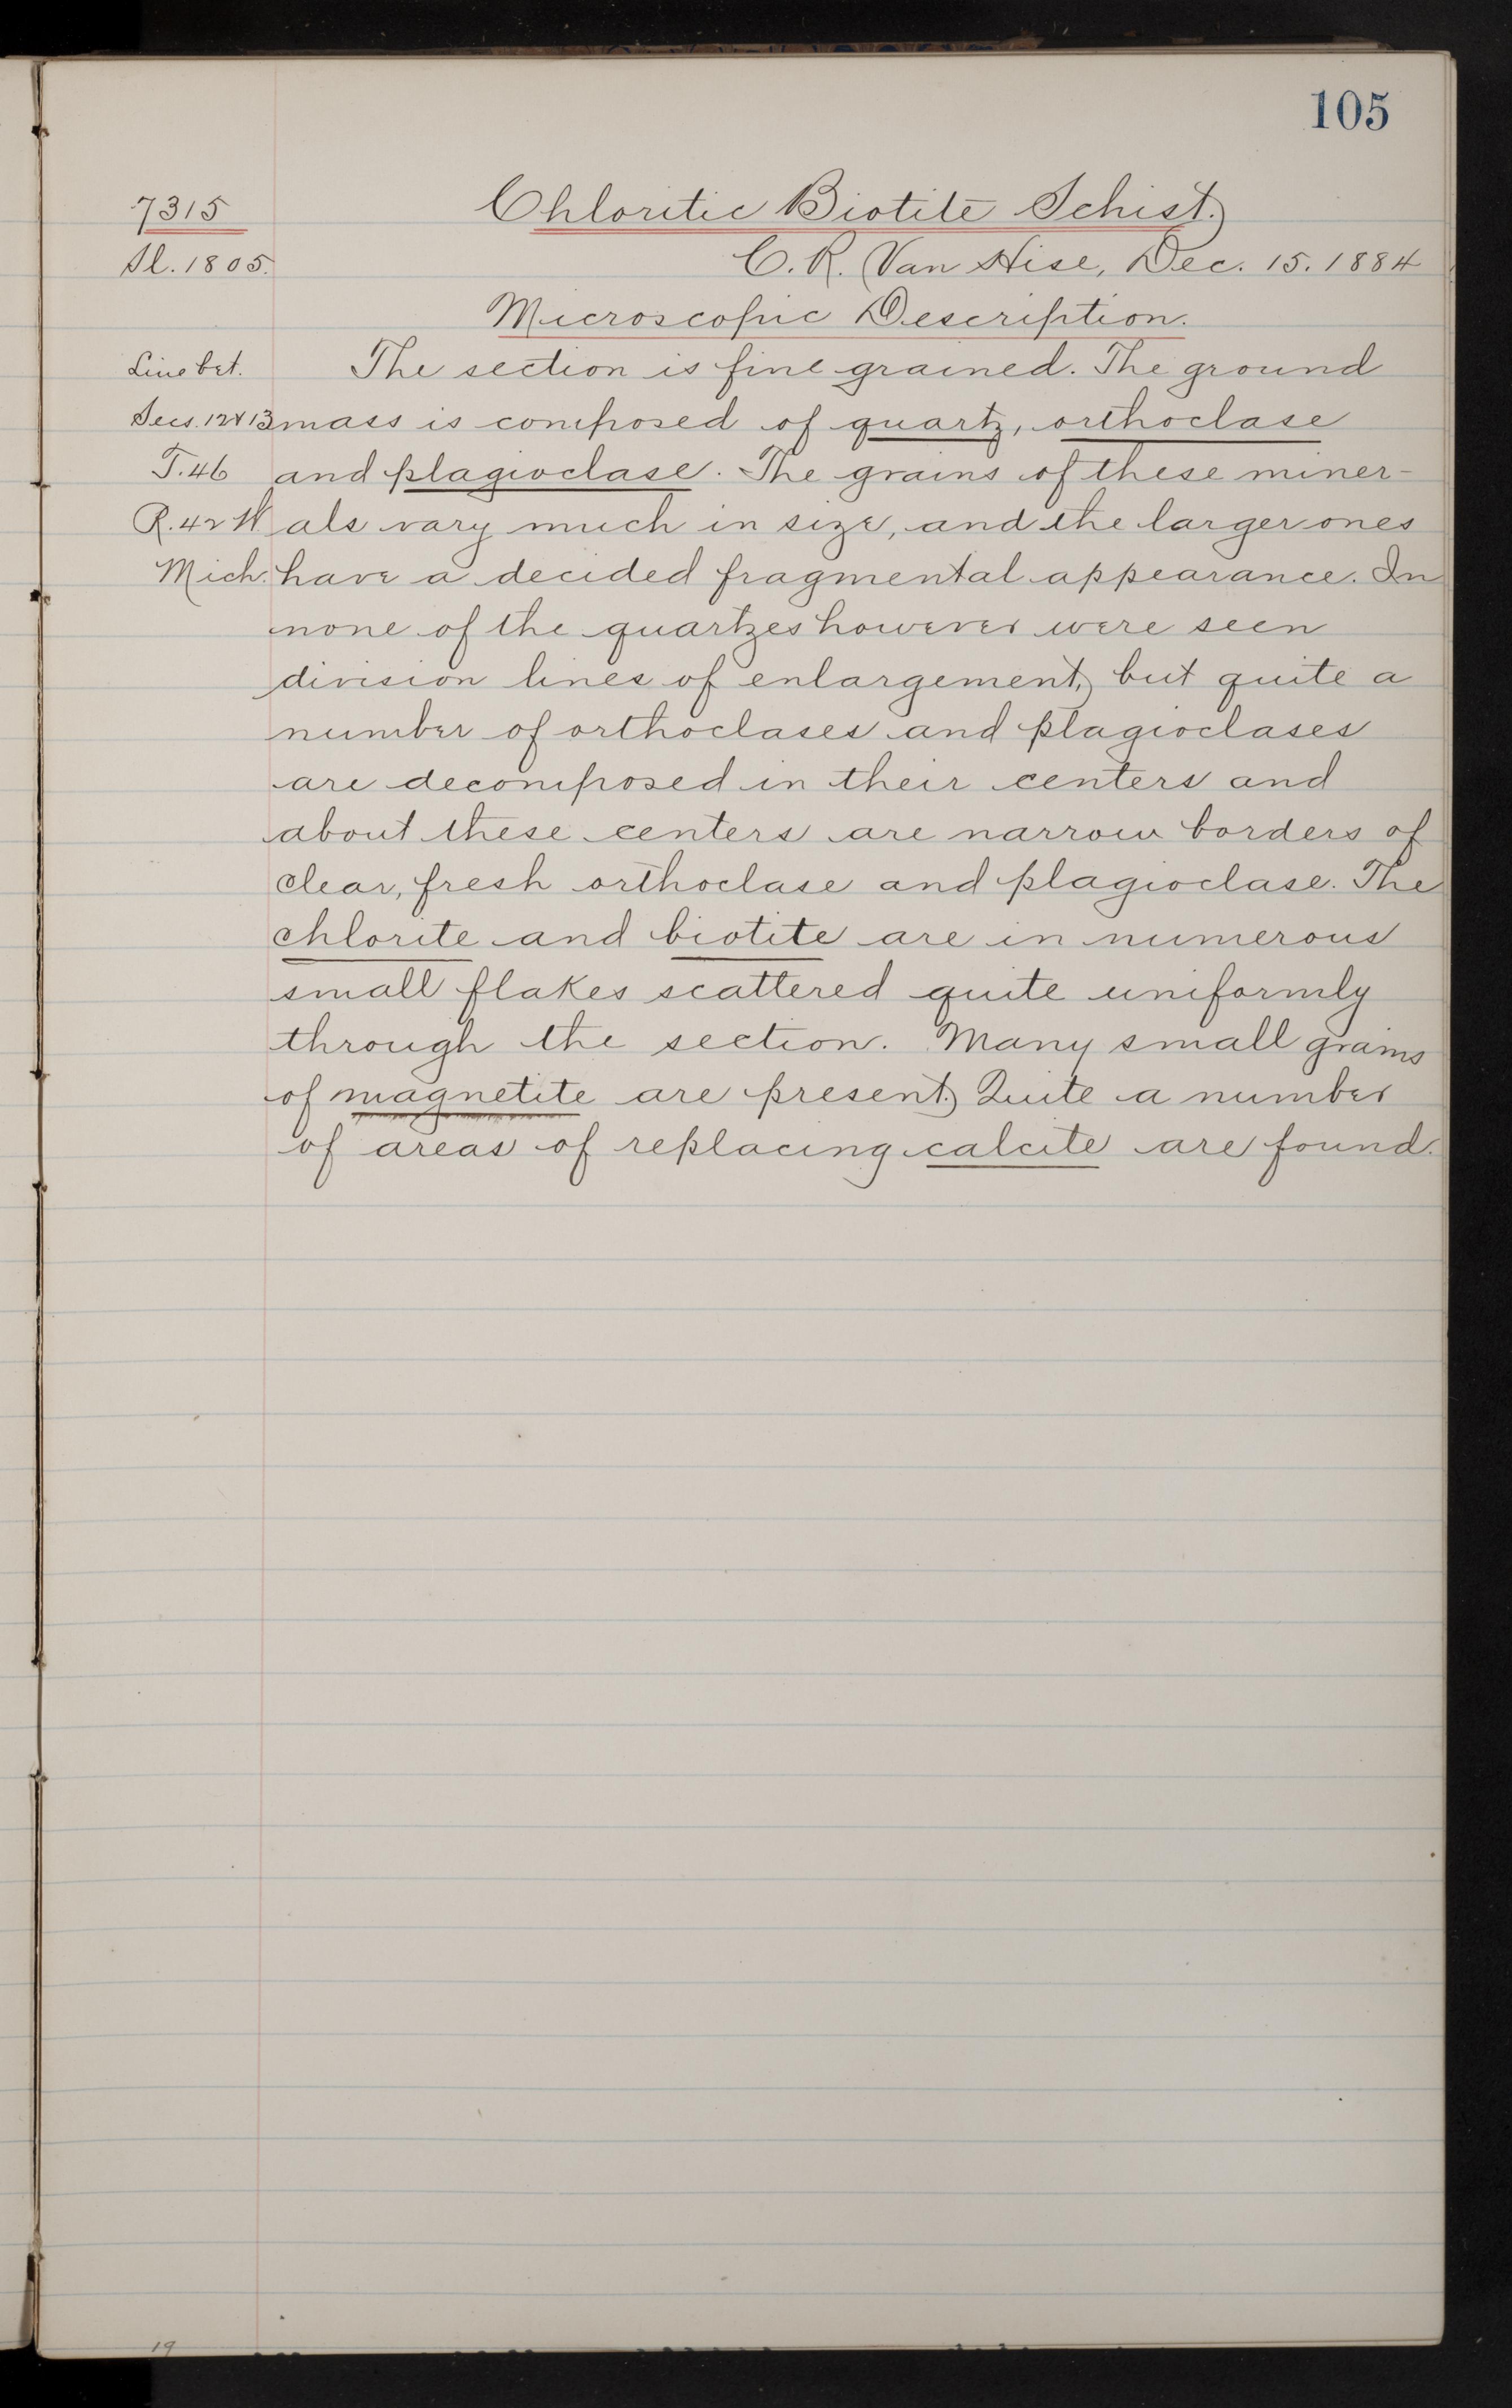 105
7315 Chloritic Biotite Schist.
Sl. 1805. C. R. Van Hise, Dec. 15. 1884
Microscopic Description.
Line bet. The section is fine grained. The ground
Secs. 12 & 13 mass is composed of quartz, orthoclase
T. 46 and plagioclase. The grains of these miner-
R. 42 W als vary much in size, and the larger ones
Mich. have a decided fragmental appearance. In
none of the quartzes however were seen
division lines of enlargement, but quite a
number of orthoclases and plagioclases
are decomposed in their centers and
about these centers are narrow borders of
clear, fresh orthoclase and plagioclase. The
chlorite and biotite are in numerous
small flakes scattered quite uniformly
through the section. Many small grains
of magnetite are present. Quite a number
of areas of replacing calcite are found.
19